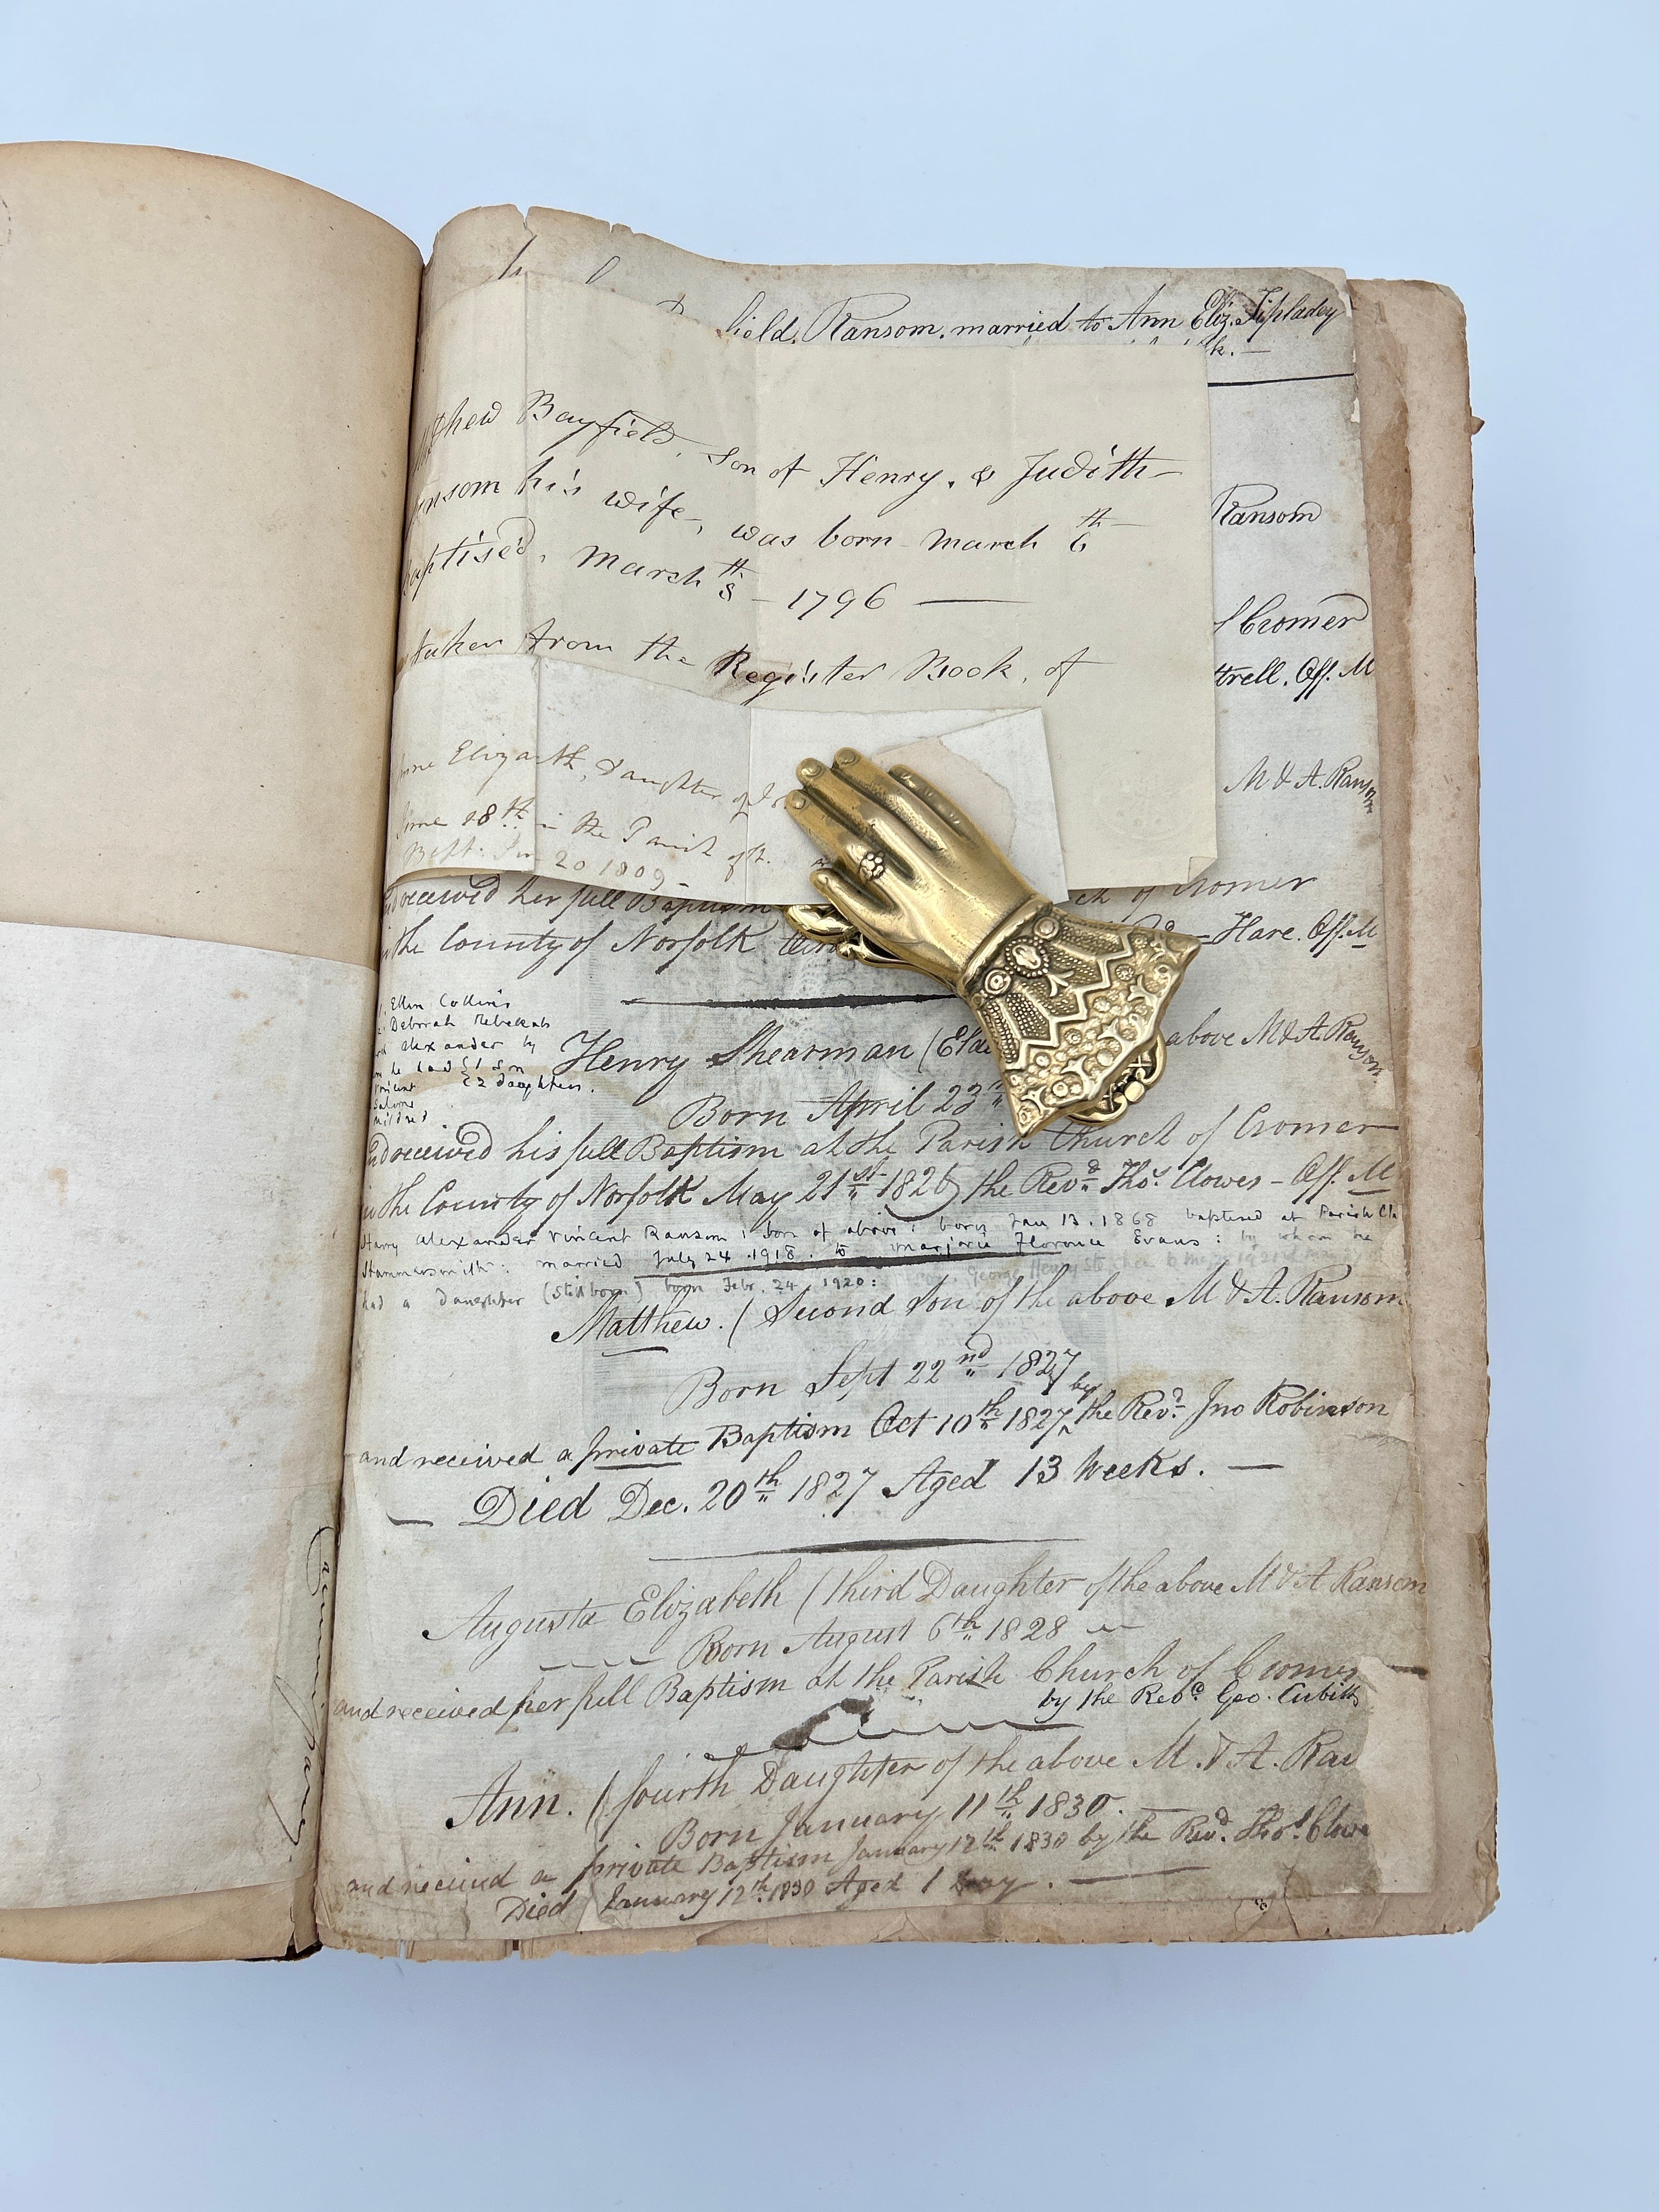 field. Ransom. married to Ann Eliz. Tiplady
lk. —
thew Bayfield, Son of Henry, & Judith —
nsom his wife, was born March 6th —
baptised, March 8th — 1796 —
taken from the Register Book, of
Ransom
Cromer
ttrell. Off. M
M & A. Ransom
Elizabeth, Daughter of
June 18th in the Parish of St.
Bapt. Jun 20 1809 —
received her full Baptism
ch of Cromer
in the County of Norfolk
Hare. Off. M
Ellen Collins
Deborah Rebekah
Alexander by
he had { 1 son
Vincent { 2 daughters.
Salome
Mildred
Henry Shearman (Elde
above M & A. Ransom.
Born April 23
and received his full Baptism at the Parish Church of Cromer
in the County of Norfolk May 21st 1826 the Revd Thos Clowes – Off. M
Harry Alexander Vincent Ransom: Son of above: born Jan 13. 1868 baptised at Parish Ch
Hammersmith: married July 24. 1918. to Marjorie Florence Evans: by whom he
had a daughter (stillborn) born Febr. 24 1920:
Matthew. (Second Son of the above M & A. Ransom
Born Sept 22nd 1827
and received a private Baptism Oct 10th 1827 by the Revd Jno Robinson
— Died Dec. 20th 1827 Aged 13 Weeks. —
Augusta Elizabeth (third Daughter of the above M & A Ransom
Born August 6th 1828
and received her full Baptism at the Parish Church of Cromer
by the Revd Geo. Cubitt
Ann. (fourth Daughter of the above M. & A. Ran
Born January 11th 1830. —
and received a private Baptism January 12th 1830 by the Revd. Thos. Clowe
Died January 12th 1830 Aged 1 Day. —